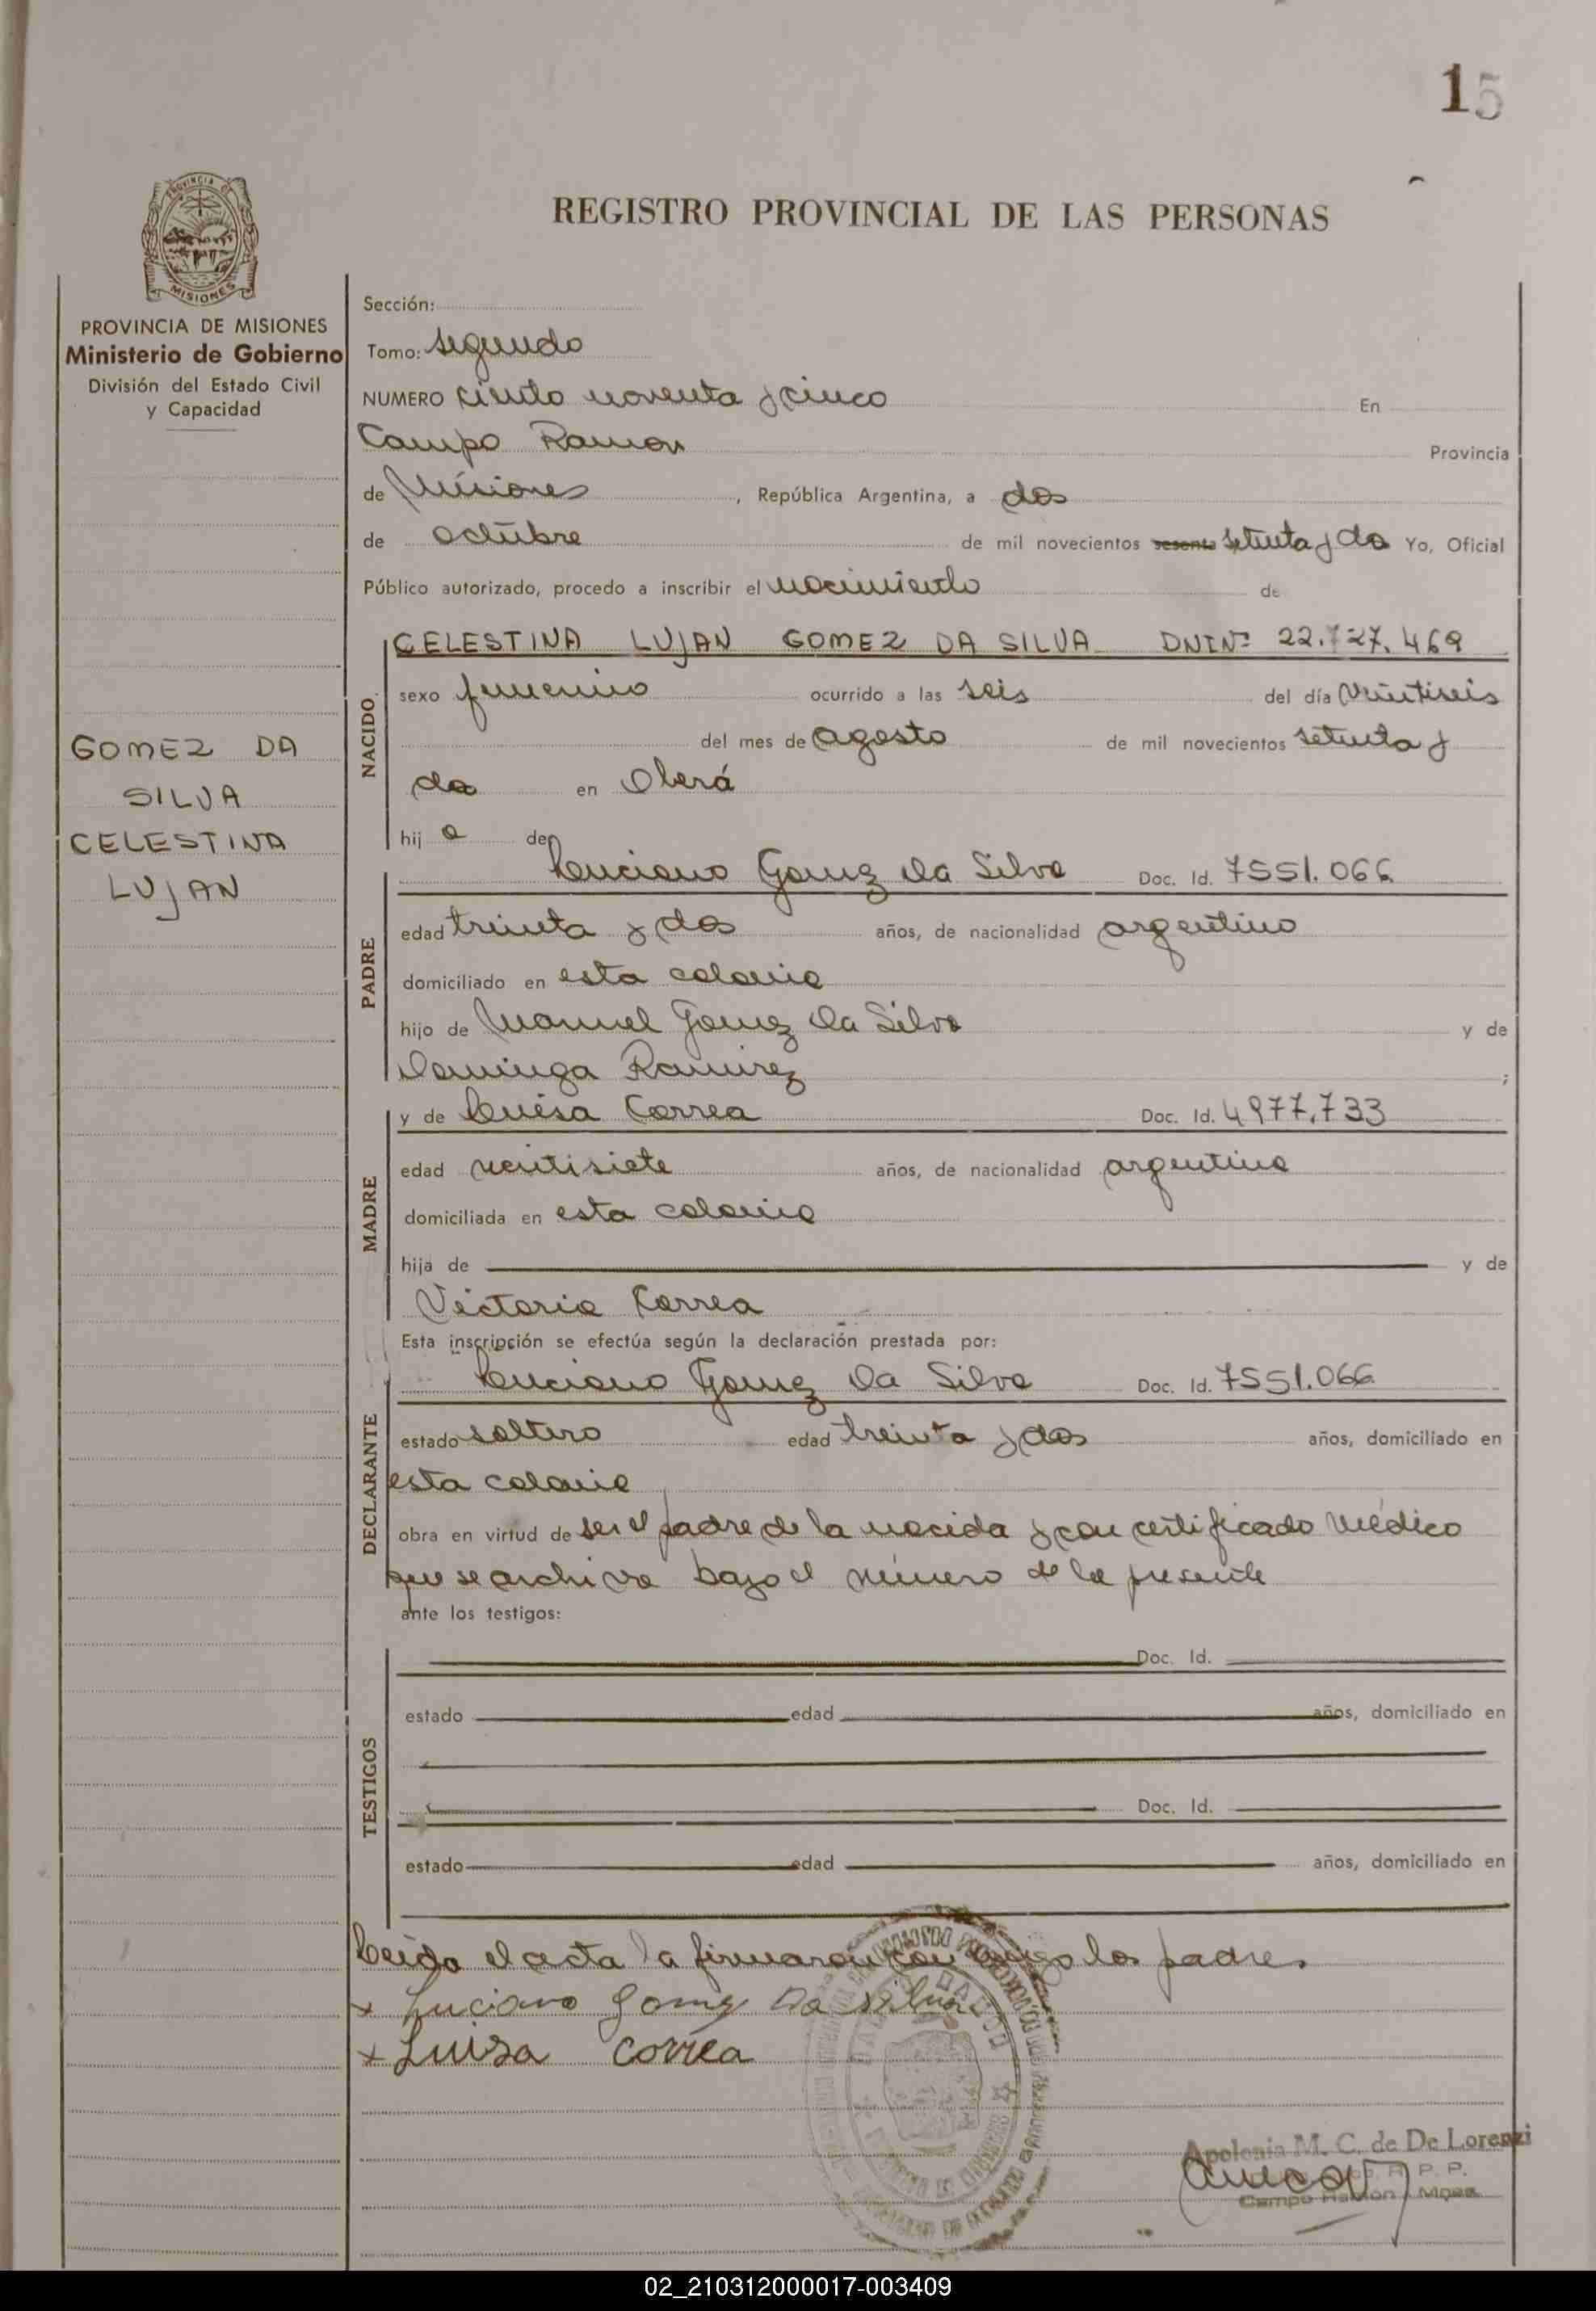 15
REGISTRO PROVINCIAL DE LAS PERSONAS
PROVINCIA DE MISIONES
Ministerio de Gobierno
División del Estado Civil
y Capacidad
GOMEZ DA
SILVA
CELESTINA
LUJAN
Sección:
Tomo: segundo
NUMERO ciento noventa y cinco En
Campo Ramon Provincia
de Misiones, República Argentina, a dos
de octubre de mil novecientos sesenta setenta y dos Yo, Oficial
Público autorizado, procedo a inscribir el nacimiento de
NACIDO
CELESTINA LUJAN GOMEZ DA SILVA DNIN° 22.727.469
sexo femenino ocurrido a las seis del día veintiseis
del mes de agosto de mil novecientos setenta y
dos en Oberá
hij a de
PADRE
Luciano Gomez Da Silva Doc. Id. 7551.066
edad treinta y dos años, de nacionalidad argentino
domiciliado en esta colonia
hijo de Manuel Gomez Da Silva y de
Dominga Ramirez ;
MADRE
y de Luisa Correa Doc. Id. 4977.733
edad veintisiete años, de nacionalidad argentina
domiciliada en esta colonia
hija de y de
Victoria Correa
Esta inscripción se efectúa según la declaración prestada por:
DECLARANTE
Luciano Gomez Da Silva Doc. Id. 7551.066
estado soltero edad treinta y dos años, domiciliado en
esta colonia
obra en virtud de ser el padre de la nacida y con certificado médico
que se archiva bajo el número de la presente
ante los testigos:
TESTIGOS
Doc. Id.
estado edad años, domiciliado en
Doc. Id.
estado edad años, domiciliado en
Leida el acta la firmaron con migo los padres
x Luciano Gomez Da Silva
x Luisa Correa
Apolonia M. C. de De Lorenzi
R. P. P.
Campo Ramon Mnes.
02_210312000017-003409